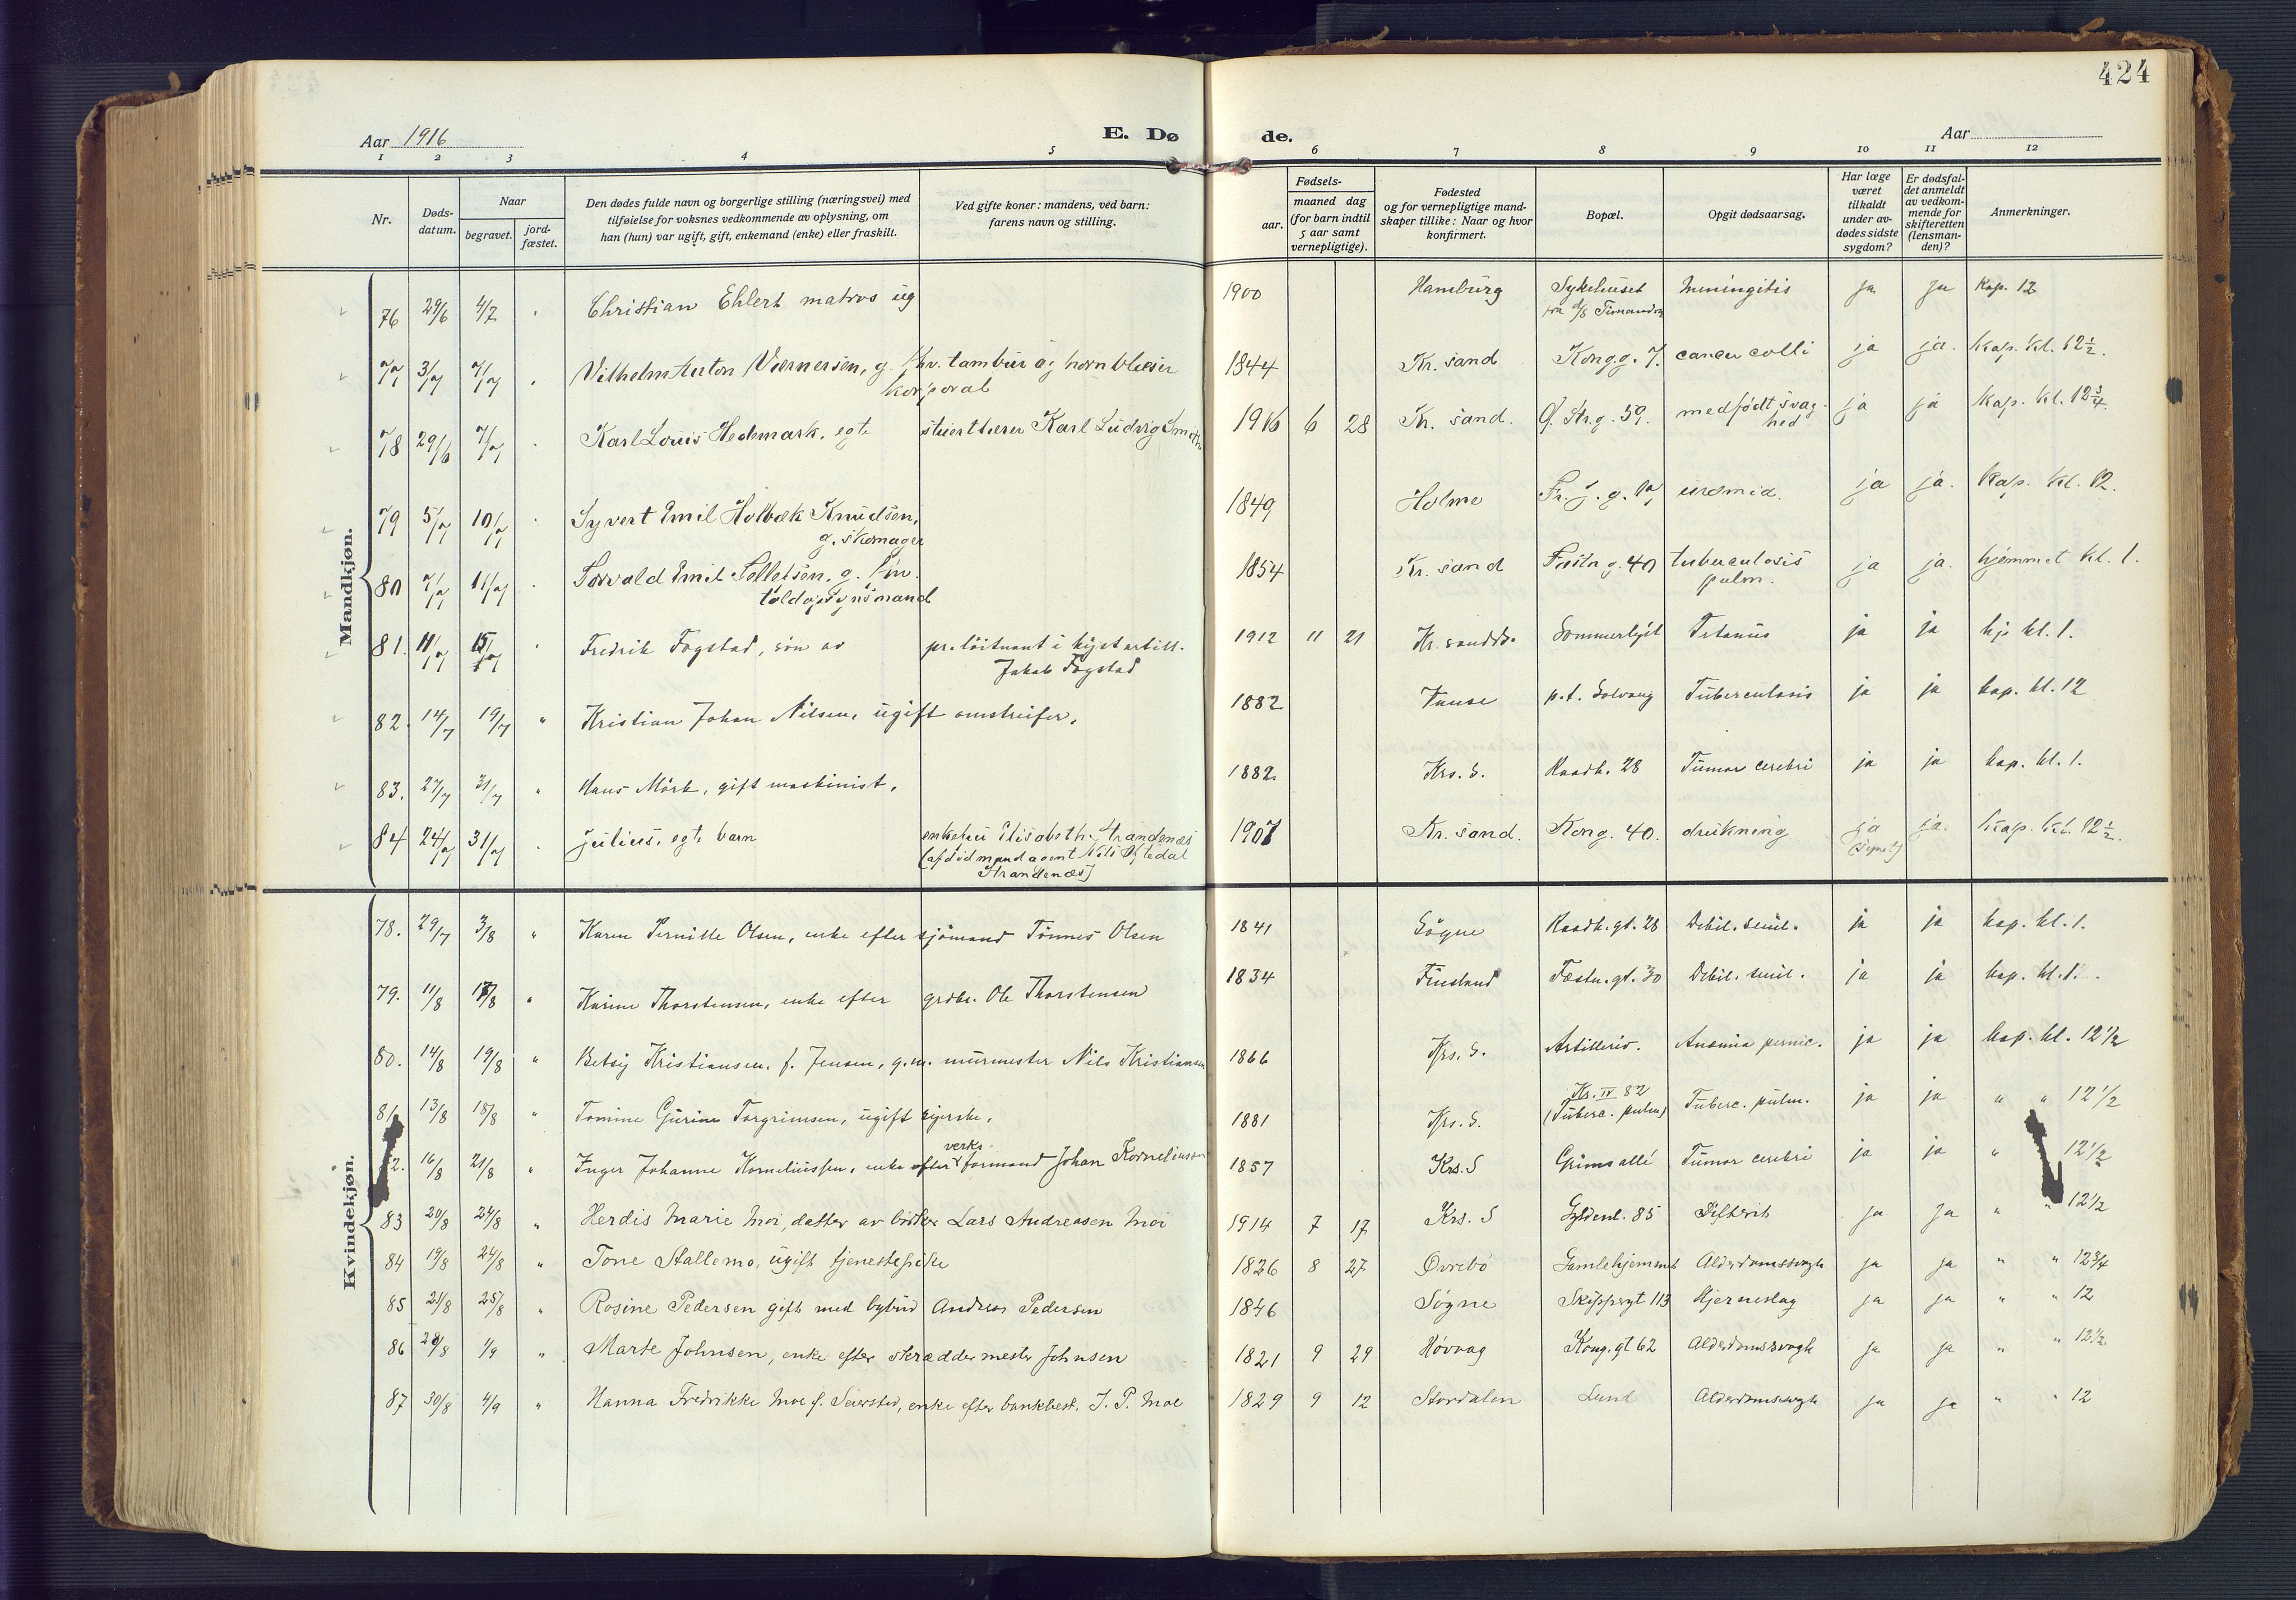 424
Aar 1916
E. Dø
de.
Aar
1 2 3 4 5 6 7 8 9 10 11 12
Nr.
Døds-
datum.
Naar
begravet.
jord-
fæstet.
Den dødes fulde navn og borgerlige stilling (næringsvei) med
tilføielse for voksnes vedkommende av oplysning, om
han (hun) var ugift, gift, enkemand (enke) eller fraskilt.
Ved gifte koner: mandens, ved barn:
farens navn og stilling.
Fødsels-
aar.
maaned dag
(for barn indtil
5 aar samt
vernepligtige).
Fødested
og for vernepligtige mand-
skaper tillike: Naar og hvor
konfirmert.
Bopæl.
Opgit dødsaarsag.
Har læge
været
tilkaldt
under av-
dødes sidste
sygdom?
Er dødsfal-
det anmeldt
av vedkom-
mende for
skifteretten
(lensman-
den)?
Anmerkninger.
Mandkjøn.
76 29/6 4/7 Christian Ehlert matros ug 1900 Hamburg Sykehuset Meningitis ja ja Kap. 12
fra d/s
77 3/7 7/7 Vilhelm Anton Wernersen, g. tambur og hornblæser 1844 Kr. sand Kongg. 7. cancer colli ja ja. Kap. kl. 12½.
korporal
78 29/6 7/7 Karl Louis Hedemark, egte Karl Ludvig 1916 6 28 Kr. sand. Ø. Str.g. 59. medfødt svag- ja ja Kap. kl. 12¾.
hed
79 5/7 10/7 Syvert Emil Holbæk Knudsen, 1849 Holme uræmia. ja ja. Kap. kl. 12.
g. skomager
80 7/7 11/7 Torvald Emil Tellefsen, g. 1854 Kr. sand Fæstn g. 40 tuberculosis ja ja. hjemmet kl. 1.
toldopsynsmand pulm.
81. 11/7 15/7 Fredrik Fogstad, søn av pr. löitnant i kystartill. 1912 11 21 Kr. sand Sommerlyst Tetanus ja ja hj. kl. 1.
Jakob Fogstad
82. 14/7 19/7 " Kristian Johan Nilsen, ugift omstreifer. 1882 Vanse p.t. Solvang Tuberculosis ja ja kap. kl. 12
83. 27/7 31/7 " Hans Mörk, gift maskinist. 1882. Krs. S. Raadh. 28 Tumor cerebri ja ja kap. kl. 1.
84 24/7 31/7 Julius, egte barn enkefru Elisabeth Strandenæs 1907 Kr. sand. Kong. 40. drukning ja ja. Kap. kl. 12½.
Strandenæs)
Kvindekjøn.
78. 29/7 3/8 " Karen Pernille Olsen, enke efter sjömand Tönnes Olsen 1841 Sögne Raadh.gt. 28 Debil. senil. ja ja kap. kl. 1.
79. 11/8 17/8 " Karine Thorstensen, enke efter grdbr. Ole Thorstensen 1834 Finsland Fæstn.gt. 30 Debil. senil. ja ja kap. kl. 1.
80. 14/8 19/8 " Betsy Kristiansen, f. Jensen, g.m. murmester Nils Kristiansen 1866 Krs. S. Artilleriv. Anæmia pernic. ja ja kap. kl. 12½
81 13/8 18/8 " Tomine Gurine Torgrimsen, ugift syerske. 1881 Krs. S. Kr. IV 82 Tuberc. pulm. ja ja " " 12½
(Tuberc. pulm)
verks
2. 16/8 21/8 " Inger Johanne Korneliussen, enke efter formand Johan Korneliussen 1857 Krs. S Grimsallé Tumor cerebri ja ja " 12½
83 20/8 24/8 " Herdis Marie Moi, datter av bødker Lars Andreasen Moi 1914 7 17 Krs. S Gyldenl. 85 Difterit ja ja " " 12½
84 19/8 24/8 " Tone Stallemo, ugift tjenestepike 1826 8 27 Øvrebö Gamlehjemmet Alderdomssvagh ja ja " " 12¾
85 21/8 25/8 " Rosine Pedersen gift med bybud Andreas Pedersen 1846 Søgne Skippergt 113 Hjerneslag ja ja " " 12
86 28/8 1/9 " Marte Johnsen, enke efter skræddermester Johnsen 1821 9 29 Høvaag Kong.gt 62 Alderdomssvagh ja ja " " 12½
87 30/8 4/9 " Hanna Fredrikke Moe f. Seiersted, enke efter bankbest. J. P. Moe 1829 9 12 Stordalen Lund Alderdomssvagh ja ja " " 12